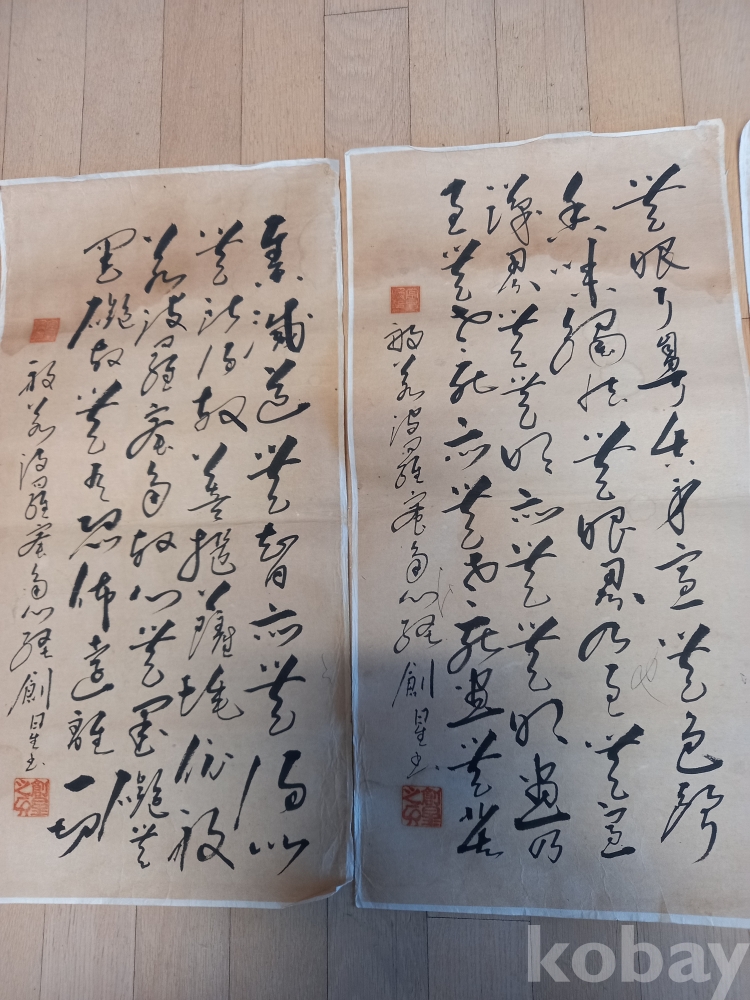 無眼耳鼻舌身意無色聲
香味觸法無眼界乃至無意
識界無無明亦無無明盡乃
至無老死亦無老死盡無苦
般若波羅蜜多心經 創星書
集滅道無智亦無得以
無所得故菩提薩埵依般
若波羅蜜多故心無罣礙無
罣礙故無有恐怖遠離一切
般若波羅蜜多心經 創星書
kobay